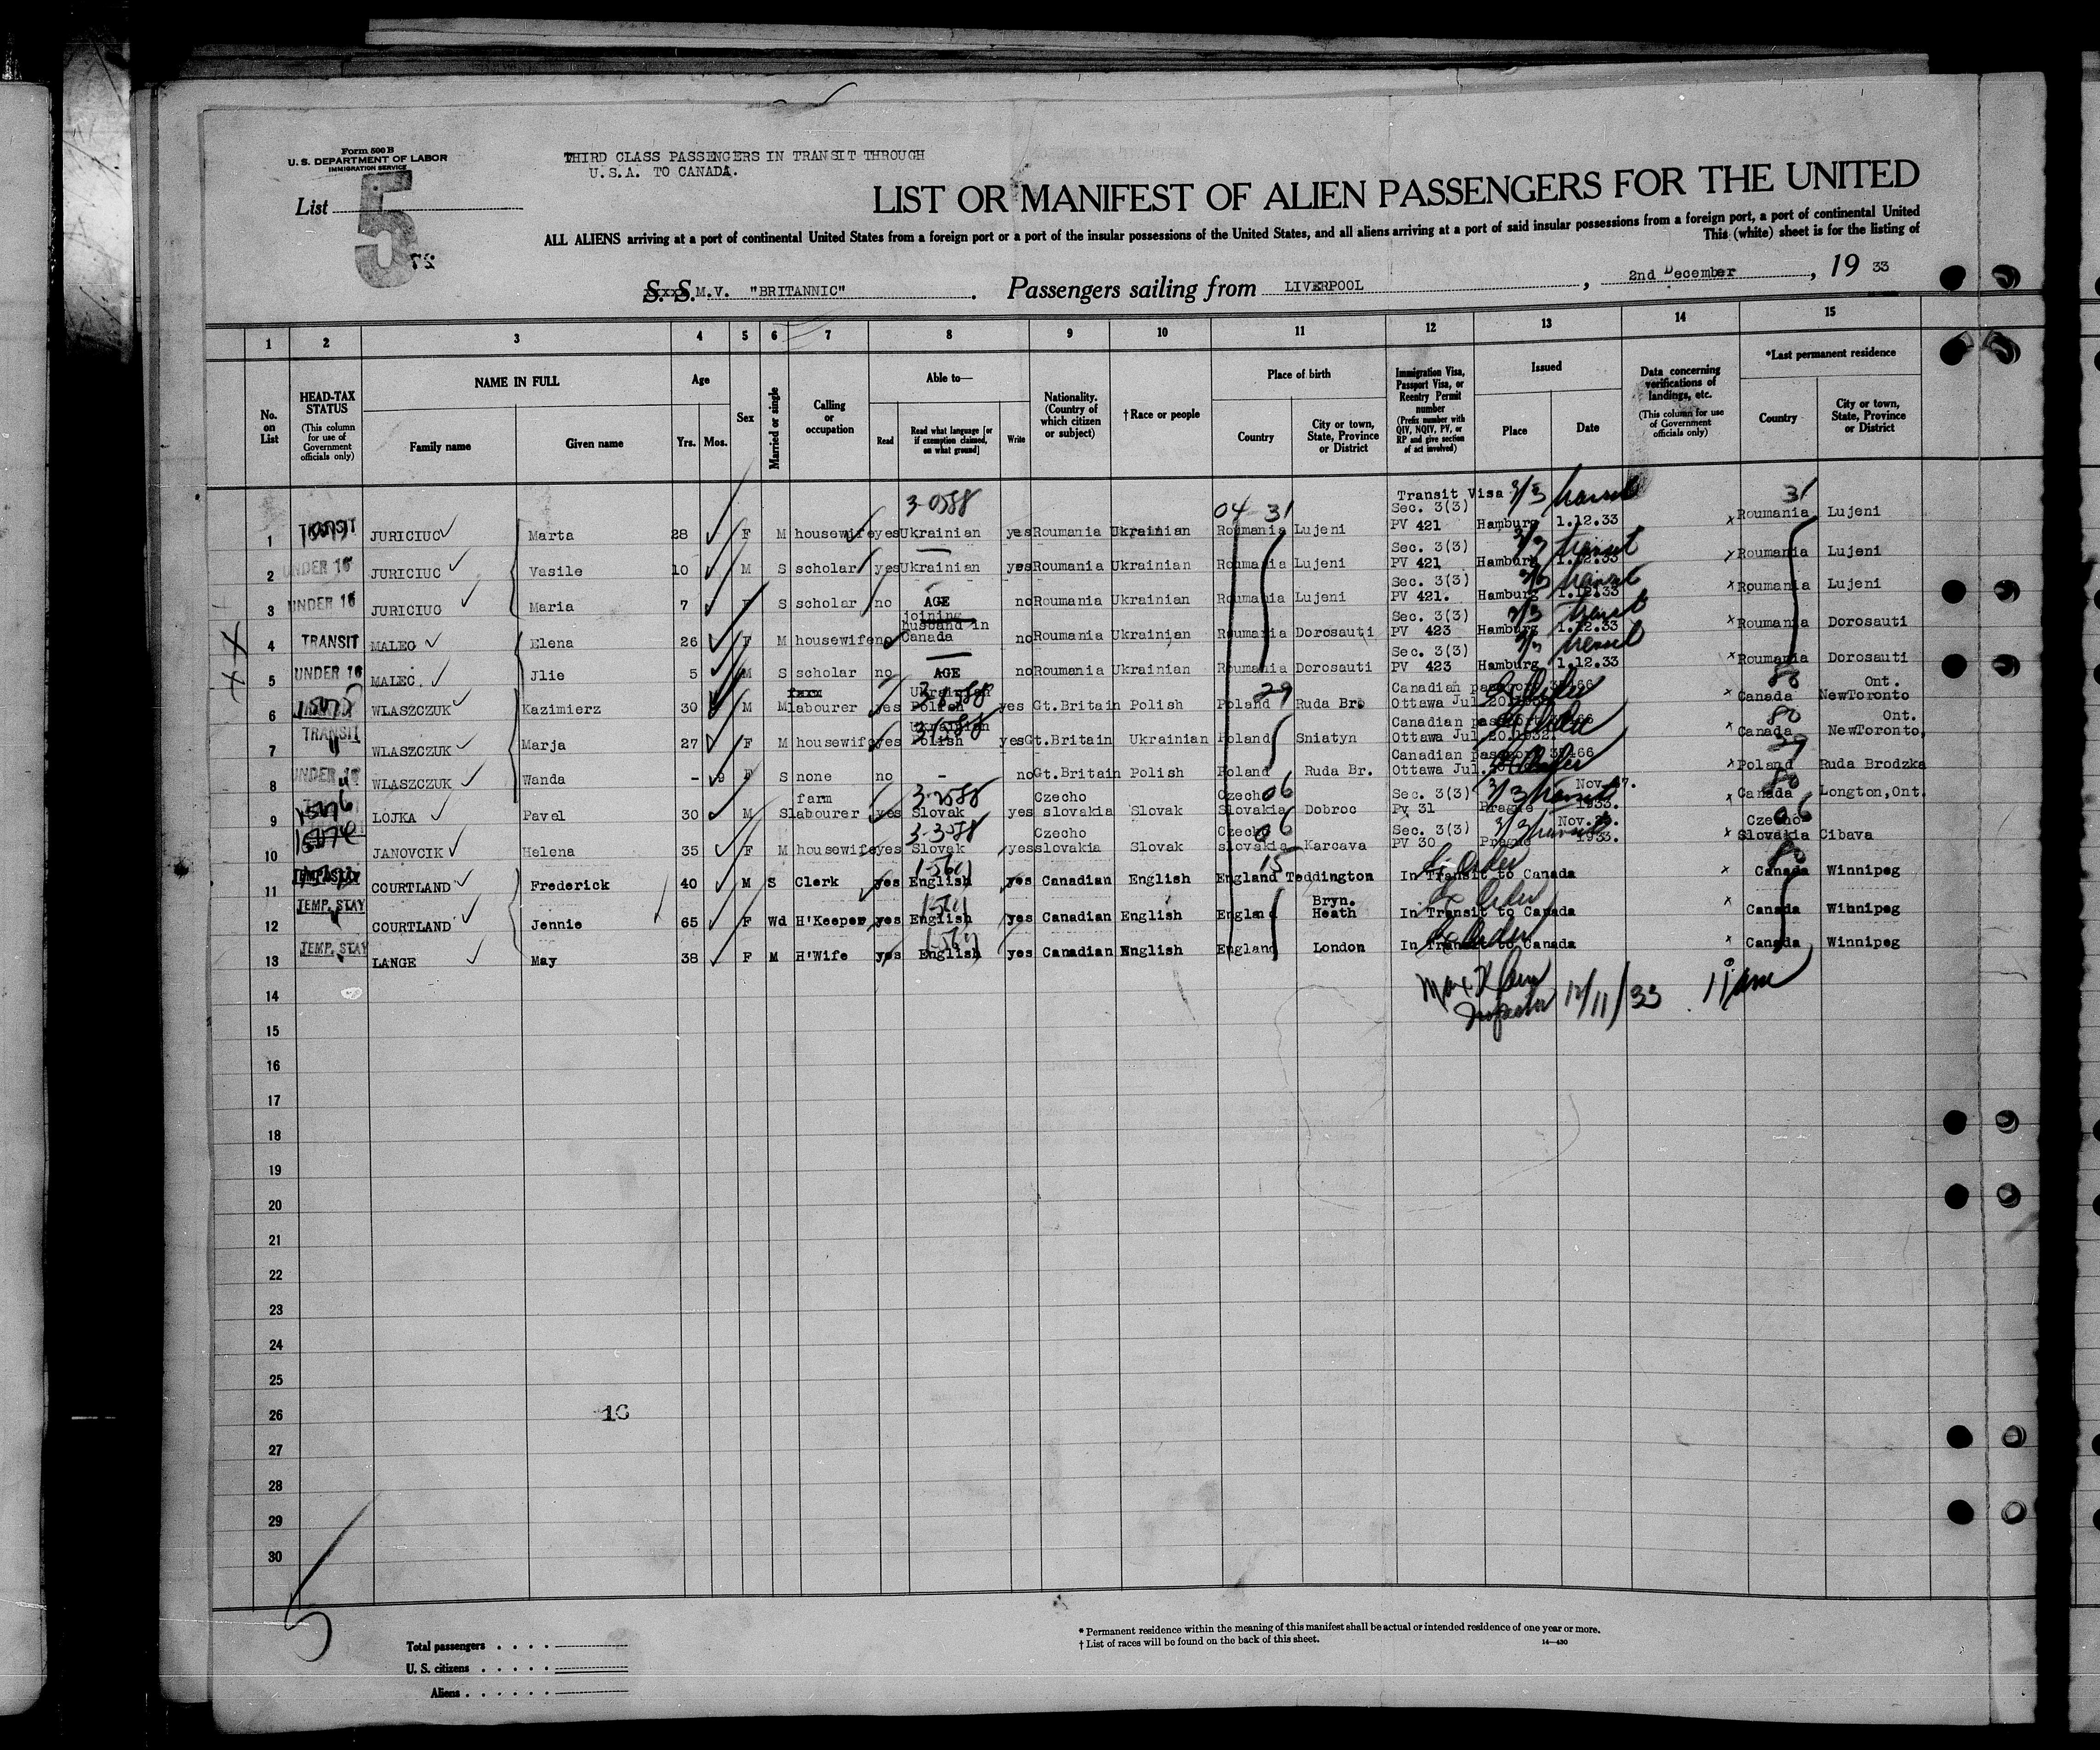 Form 500 B
U. S. DEPARTMENT OF LABOR
IMMIGRATION SERVICE
THIRD CLASS PASSENGERS IN TRANSIT THROUGH
U.S.A. TO CANADA.
List 5
27
LIST OR MANIFEST OF ALIEN PASSENGERS FOR THE UNITED
ALL ALIENS arriving at a port of continental United States from a foreign port or a port of the insular possessions of the United States, and all aliens arriving at a port of said insular possessions from a foreign port, a port of continental United
This (white) sheet is for the listing of
S. S. M.V. "BRITANNIC" . Passengers sailing from LIVERPOOL , 2nd December , 19 33
1 2 3 4 5 6 7 8 9 10 11 12 13 14 15
No. on List
HEAD-TAX STATUS (This column for use of Government officials only)
NAME IN FULL
Family name
Given name
Age
Yrs. Mos.
Sex
Married or single
Calling or occupation
Able to—
Read
Read what language [or if exemption claimed, on what ground]
Write
Nationality. (Country of which citizen or subject)
† Race or people
Place of birth
Country
City or town, State, Province or District
Immigration Visa, Passport Visa, or Reentry Permit number (Prefix number with QIV, NQIV, PV, or RP and give section of act involved)
Issued
Place
Date
Data concerning verifications of landings, etc. (This column for use of Government officials only)
*Last permanent residence
Country
City or town, State, Province or District
04 31 Transit Visa 3/3 transit 31
1 TRANSIT JURICIUC Marta 28 F M housewife yes Ukrainian yes Roumania Ukrainian Roumania Lujeni Sec. 3(3) PV 421 Hamburg 1.12.33 x Roumania Lujeni
2 UNDER 16 JURICIUC Vasile 10 M S scholar yes Ukrainian yes Roumania Ukrainian Roumania Lujeni Sec. 3(3) PV 421 Hamburg 1.12.33 3/3 transit x Roumania Lujeni
3 UNDER 16 JURICIUC Maria 7 F S scholar no AGE no Roumania Ukrainian Roumania Lujeni Sec. 3(3) PV 421. Hamburg 1.12.33 3/3 transit x Roumania Lujeni
4 TRANSIT MALEC Elena 26 F M housewife no joining husband in Canada no Roumania Ukrainian Roumania Dorosauti Sec. 3(3) PV 423 Hamburg 1.12.33 3/3 transit x Roumania Dorosauti
5 UNDER 16 MALEC. Jlie 5 M S scholar no AGE no Roumania Ukrainian Roumania Dorosauti Sec. 3(3) PV 423 Hamburg 1.12.33 3/3 transit x Roumania Dorosauti
6 WLASZCZUK Kazimierz 30 M M labourer yes Ukrainian Polish yes Gt.Britain Polish Poland 29 Ruda Br. Canadian passport Ottawa Jul.20.1932. x Canada 80 Ont. NewToronto
7 TRANSIT WLASZCZUK Marja 27 F M housewife yes Ukrainian Polish yes Gt.Britain Ukrainian Poland Sniatyn Canadian passport Ottawa Jul.20.1932. x Canada 80 Ont. NewToronto,
8 UNDER 16 WLASZCZUK Wanda - 9 F S none no - no Gt.Britain Polish Poland Ruda Br. Canadian passport Ottawa Jul. x Poland Ruda Brodzka
9 LOJKA Pavel 30 M S farm labourer yes Slovak yes Czecho slovakia Slovak Czecho Slovakia 06 Dobroc Sec. 3(3) Pv 31 Prague Nov.27. 1933. 3/3 transit x Canada Longton,Ont.
10 JANOVCIK Helena 35 F M housewife yes Slovak yes Czecho slovakia Slovak Czecho slovakia 06 Karcava Sec. 3(3) PV 30 Prague 1933. 3/3 transit x Czecho Slovakia 06 Cibava
11 COURTLAND Frederick 40 M S Clerk yes English yes Canadian English England 15 Teddington In Transit to Canada x Canada Winnipeg
12 TEMP. STAY COURTLAND Jennie 65 F Wd H'Keeper yes English yes Canadian English England Bryn. Heath In Transit to Canada x Canada Winnipeg
13 TEMP. STAY LANGE May 38 F M H'Wife yes English yes Canadian English England London In Transit to Canada x Canada Winnipeg
14 Inspector 12/11/33 11 am
15
16
17
18
19
20
21
22
23
24
25
26 16
27
28
29
30
5
Total passengers
U. S. citizens
Aliens
* Permanent residence within the meaning of this manifest shall be actual or intended residence of one year or more.
† List of races will be found on the back of this sheet. 14—430